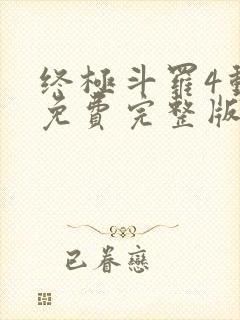 终極斗羅4
免費完整版
已眷戀